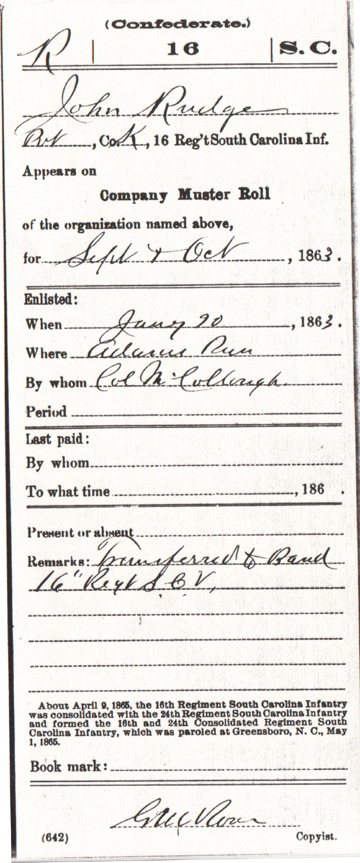 (Confederate.)
R | 16 | S. C.
John Rudge
Pvt, Co. K, 16 Reg't South Carolina Inf.
Appears on
Company Muster Roll
of the organization named above,
for Sept & Oct, 1863.
Enlisted:
When Jany 20, 1863.
Where Adams Run
By whom Col McCollough
Period
Last paid:
By whom
To what time, 186 .
Present or absent
Remarks: Transferred to Band
16" Regt S. C. V,
About April 9, 1865, the 16th Regiment South Carolina Infantry
was consolidated with the 24th Regiment South Carolina Infantry
and formed the 16th and 24th Consolidated Regiment South
Carolina Infantry, which was paroled at Greensboro, N. C., May
1, 1865.
Book mark:
(642) Copyist.